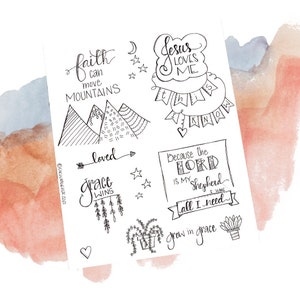 faith
can
move
MOUNTAINS
Jesus
LOVES
ME
THIS I
KNOW
loved
Because the
LORD
IS MY Shepherd
I HAVE
all I need
grace
WINS
grow in grace